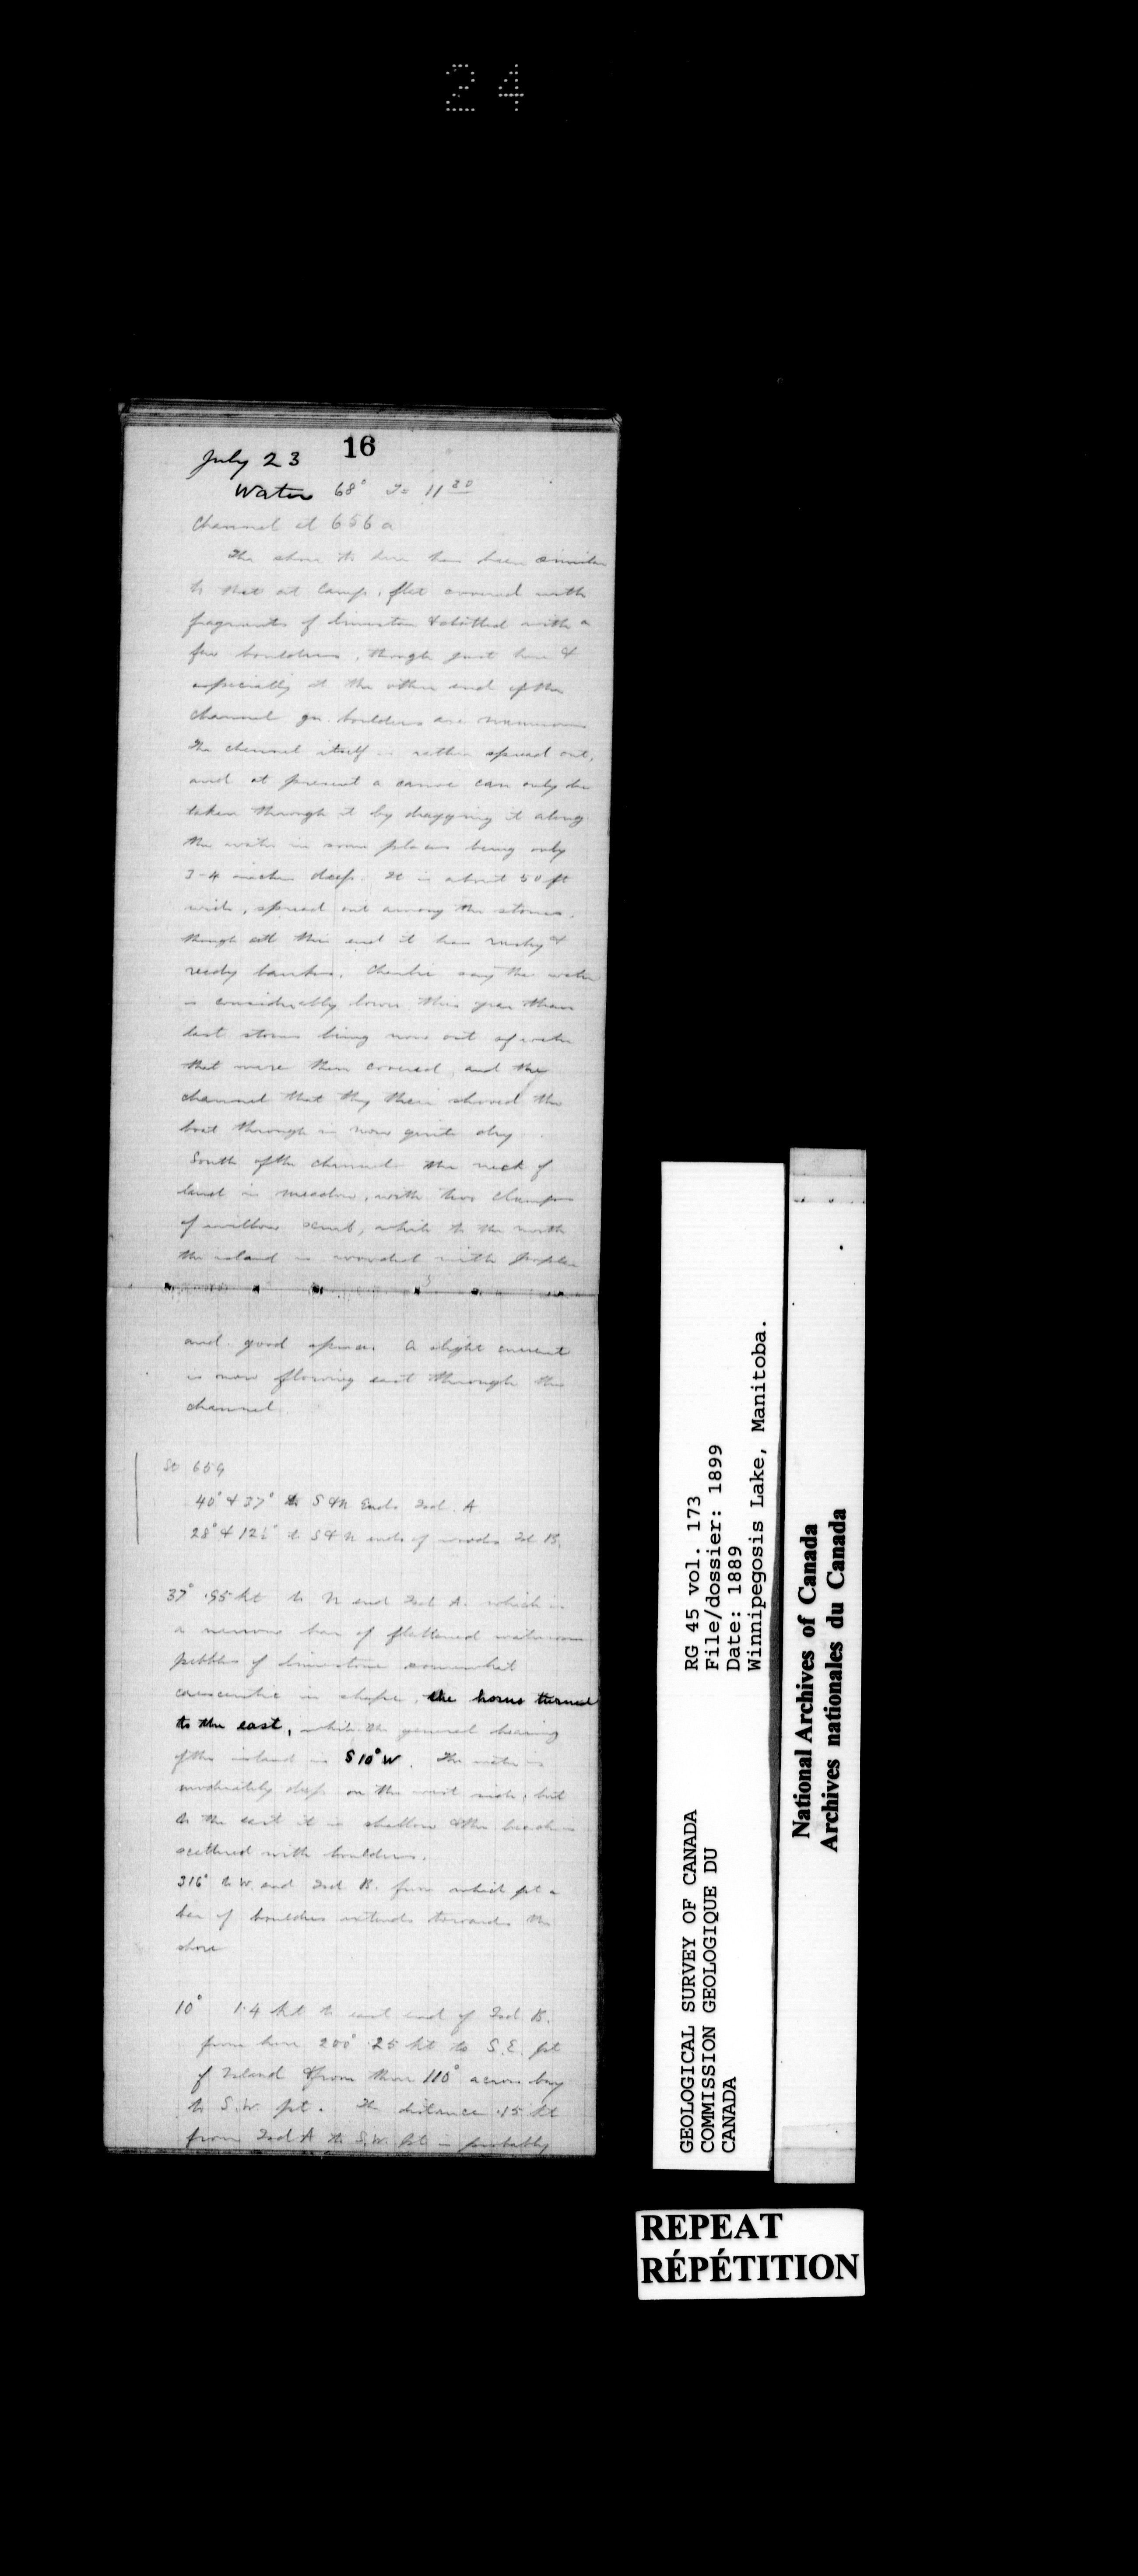 24
16
July 23
Water 68° T= 11 20
Channel at 656a
The shore to here has been similar
to that at Camp, flat covered with
fragments of limestone & dotted with a
few boulders, though just here &
especially at the other end of the
channel gn. boulders are numerous
The channel itself is rather spread out,
and at present a canoe can only be
taken through it by dragging it along
the water in some places being only
3-4 inches deep. It is about 50 ft
wide, spread out among the stones,
though at this end it has rushy &
reedy banks. Charlie says the water
is considerably lower this year than
last stones being now out of water
that were then covered, and the
channel that they then shoved the
boat through is now quite dry
South of the channel the neck of
land is meadow, with two clumps
of willow scrub, while to the north
the island is wooded with poplar
and good spruce. A slight current
is now flowing east through the
channel.
St 659
40° & 37° to S & N Ends Isd. A
28° & 12 ° to S & N ends of woods Isd B.
37° .95 kt to N end Isd A. which is
a narrow bar of flattened waterworn
pebbles of limestone somewhat
crescentic in shape, the horns turned
to the east, while the general bearing
of the island is S10°W. The water is
moderately deep on the west side, but
to the east it is shallow & the beach is
scattered with boulders.
316° to W. end Isd B. from which pt a
bar of boulders extends towards the
shore
10° 1.4 kt to east end of Isd. B.
from here 200° .25 kt to S.E. pt
of Island & from there 110° across bay
to S.W. pt. The distance .15 kt
from Isd A to S.W. Pt is probably
GEOLOGICAL SURVEY OF CANADA
COMMISSION GEOLOGIQUE DU
CANADA
RG 45 vol. 173
File/dossier: 1899
Date: 1889
Winnipegosis Lake, Manitoba.
National Archives of Canada
Archives nationales du Canada
REPEAT
RÉPÉTITION